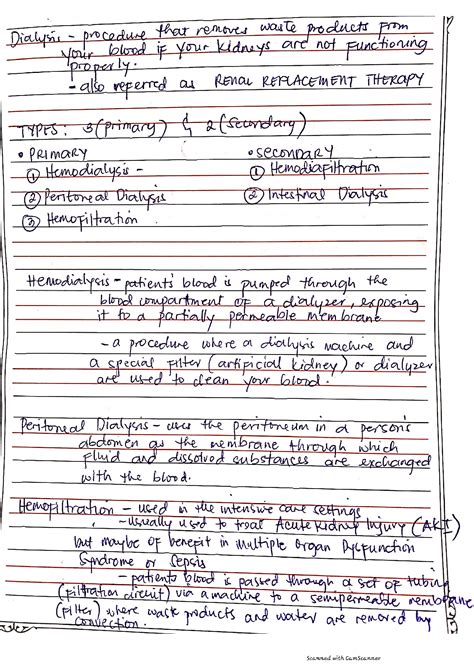 Dialysis - procedure that removes waste products from
your blood if your kidneys are not functioning
properly.
- also referred as RENAL REPLACEMENT THERAPY
TYPES: 3 (primary) & 2 (secondary)
• PRIMARY • SECONDARY
① Hemodialysis - ① Hemodiafiltration
② Peritoneal Dialysis ② Intestinal Dialysis
③ Hemofiltration
Hemodialysis - patient's blood is pumped through the
blood compartment of a dialyzer, exposing
it to a partially permeable membrane
- a procedure where a dialysis machine and
a special filter (artificial kidney) or dialyzer
are used to clean your blood.
Peritoneal Dialysis - uses the peritoneum in a person's
abdomen as the membrane through which
fluid and dissolved substances are exchanged
with the blood.
Hemofiltration - used in the intensive care settings
- usually used to treat Acute Kidney Injury (AKI)
but maybe of benefit in Multiple Organ Dysfunction
Syndrome or Sepsis
- patients blood is passed through a set of tubing
(filtration circuit) via a machine to a semipermeable membrane
(filter) where waste products and water are removed by
convection.
Scanned with CamScanner